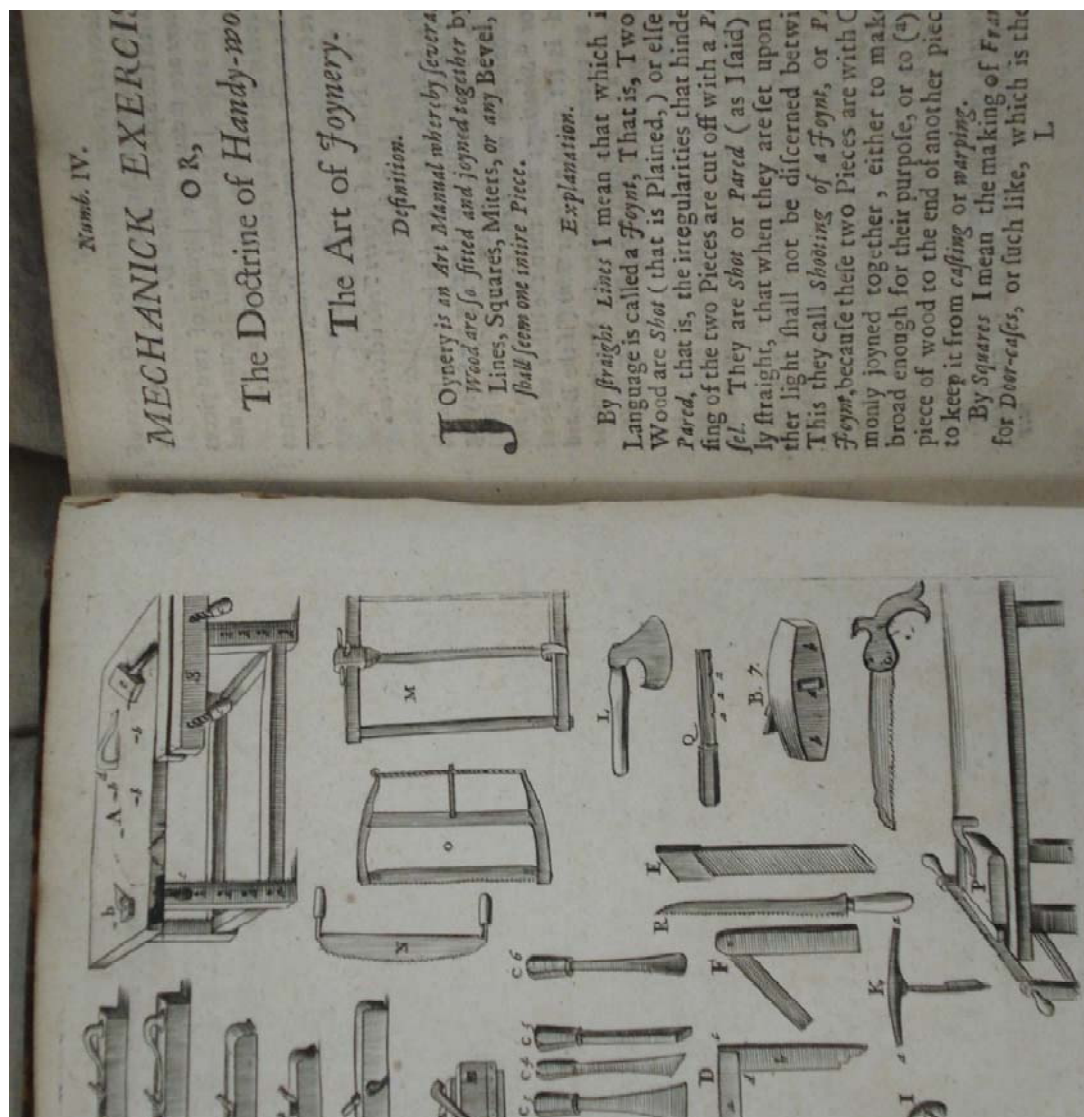 Numb. IV.
MECHANICK EXERCIS
OR,
The Doctrine of Handy-wo
The Art of Joynery.
Definition.
JOynery is an Art Manual whereby ſevera
Wood are ſo fitted and joyned together by
Lines, Squares, Miters, or any Bevel,
ſhall ſeem one intire Piece.
Explanation.
By ſtraight Lines I mean that which i
Language is called a Joynt, That is, Two
Wood are Shot (that is Plained,) or elſe
Pared, that is, the irregularities that hinde
ſing of the two Pieces are cut off with a Pa
ſel. They are Shot or Pared (as I ſaid)
ly ſtraight, that when they are ſet upon
ther light ſhall not be diſcerned betwi
This they call Shooting of a Joynt, or Pa
Joynt, becauſe theſe two Pieces are with C
monly joyned together, either to make
broad enough for their purpoſe, or to (a)
piece of wood to the end of another piec
to keep it from caſting or warping.
By Squares I mean the making of Fram
for Door-caſes, or ſuch like, which is the
L
b
A
b
b
b
g
M
O
N
L
Q
B. 7.
E
R
F
C 6
C 5
C 4
C 3
D
K
P
I